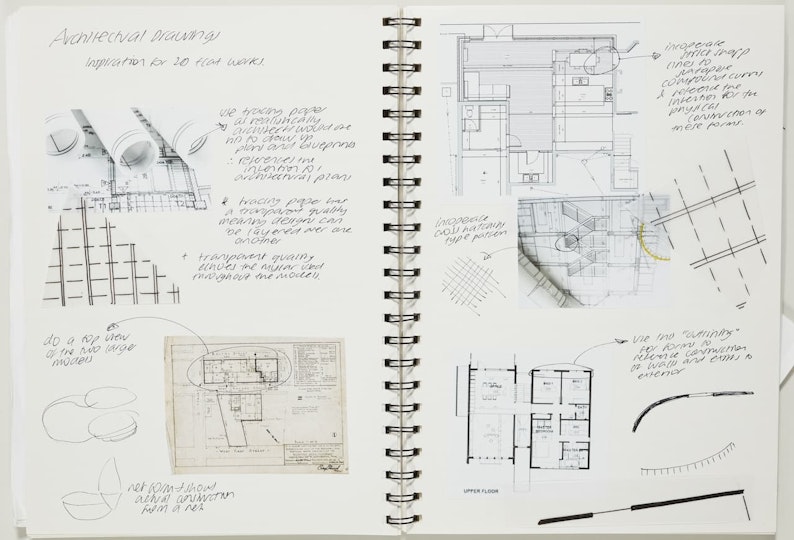 Architectural Drawings
Inspiration for 2D flat works.
use tracing paper
as realistically
architects would use
this to draw up
plans and blueprints
∴ references the
intention to
architectural plans
& tracing paper has
a transparent quality
meaning designs can
be layered over one
another
+ transparent quality
echoes the mylar used
throughout the models.
do a top view
of the two larger
models
net form & show
actual construction
from a net
incorperate
thick sharp
lines to
juxtapose
compound curves
& reference the
intention for the
physical
construction of
these forms.
incorperate
cross hatching
type pattern
use this "outlining"
for forms to
reference construction
of walls and exists to
exterior
UPPER FLOOR